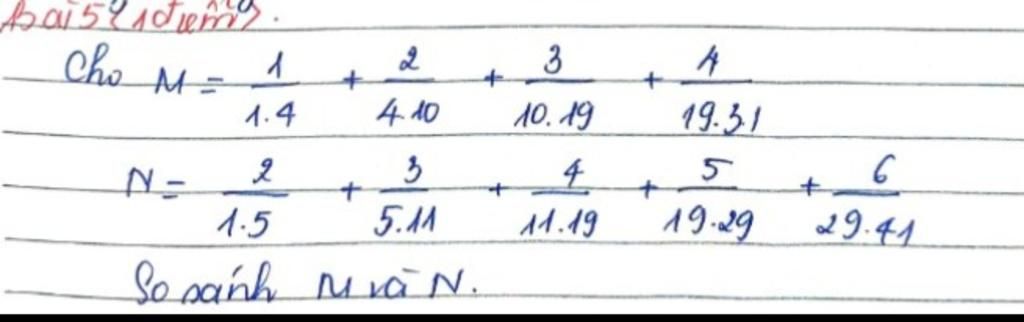 Bài 5 (1 điểm).
Cho M = 1/1.4 + 2/4.10 + 3/10.19 + 4/19.31
N = 2/1.5 + 3/5.11 + 4/11.19 + 5/19.29 + 6/29.41
So sánh M và N.